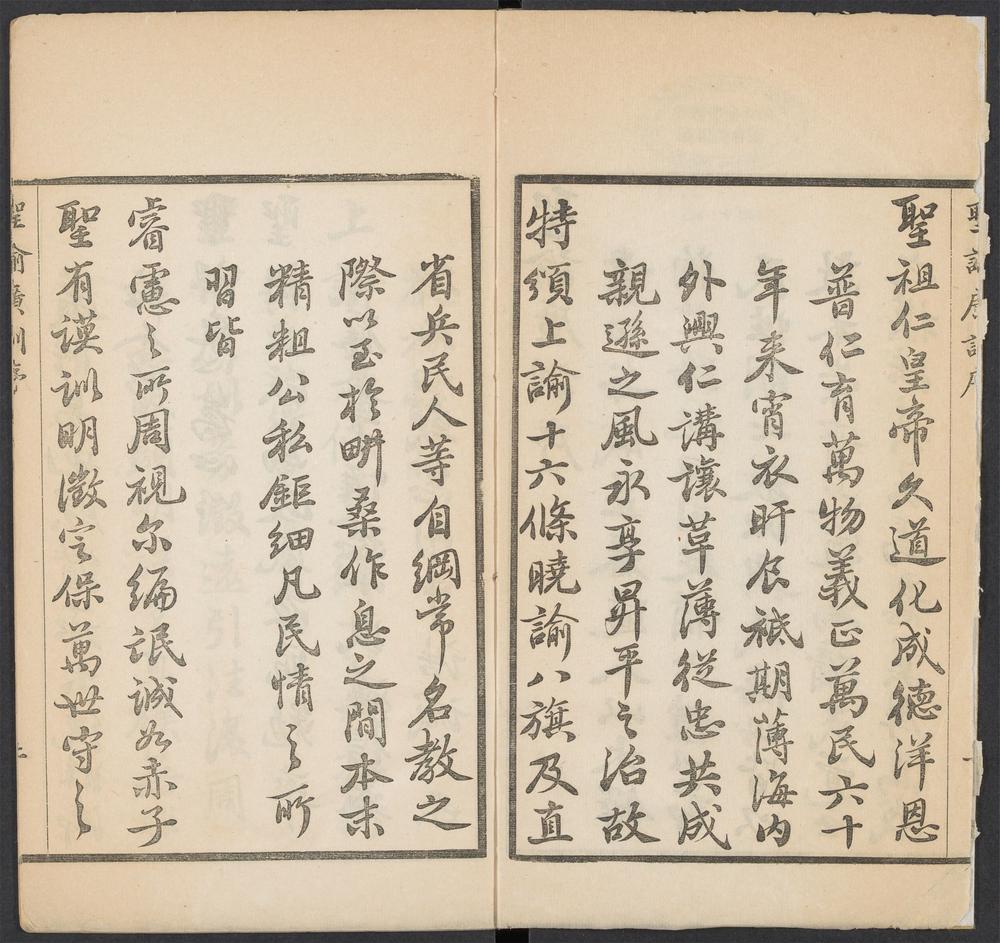 聖諭廣訓序
聖祖仁皇帝久道化成德洋恩
普仁育萬物義正萬民六十
年来宵衣旰食祇期薄海内
外興仁講讓革薄從忠共成
親遜之風永享昇平之治故
特頒上諭十六條曉諭八旗及直
省兵民人等自綱常名教之
際以至於畊桑作息之間本末
精粗公私鉅細凡民情之所
習皆
睿慮之所周視尔編氓誠如赤子
聖有謨訓明徵定保萬世守之
聖諭廣訓序